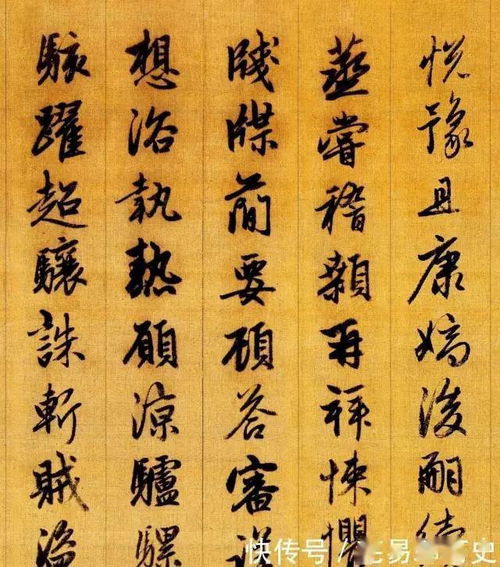 悦豫且康嫡後嗣續
蒸嘗稽顙再拜悚懼
牋牒簡要顧答審詳
想浴執熱願涼驢騾
駭躍超驤誅斬賊盜
快传号/易史